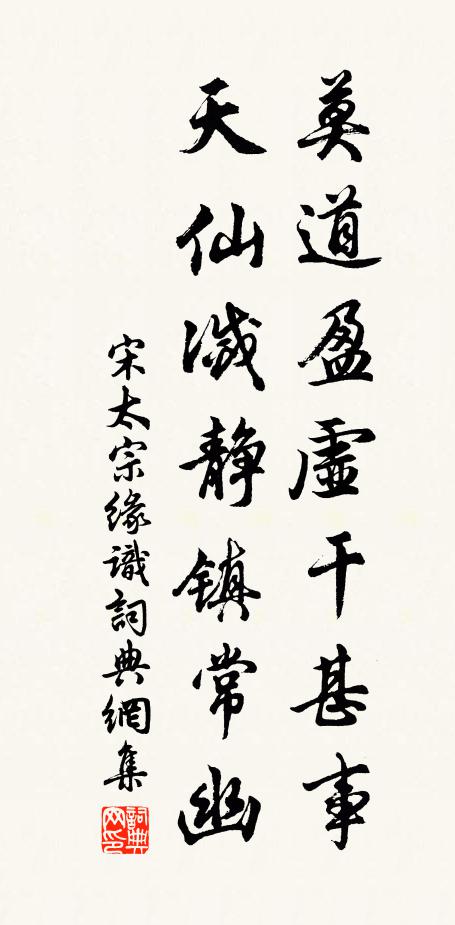 莫道盈虛干甚事
天仙減靜鎮常幽
宋太宗緣識詞典網集
詞典網印